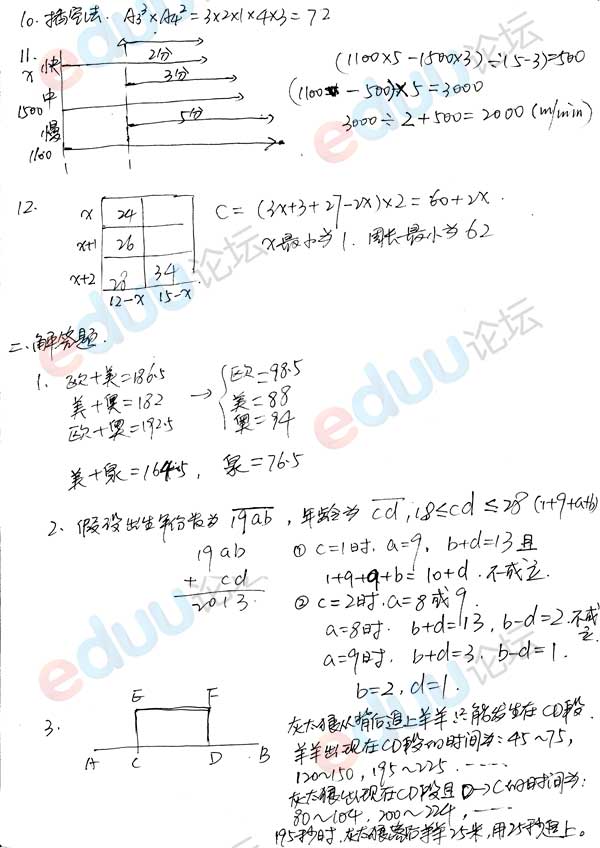 10. 插空法. A₃³×A₄²=3×2×1×4×3=72
11.
x 快 2分
中 3分
1500
慢 5分
1100
(1100×5-1500×3)÷(5-3)=500
(1100-500)×5=3000
3000÷2+500=2000 (m/min)
12.
x 24
x+1 26
x+2 28 34
12-x 15-x
C=(3x+3+27-2x)×2=60+2x.
x最小为1. 周长最小为62
二. 解答题.
1. 欧+美=186.5
美+奥=182
欧+奥=192.5
→ { 欧=98.5
美=88
奥=94
美+泉=164.5, 泉=76.5
2. 假设出生年份为 19ab, 年龄为 cd, 18≤cd≤28 (1+9+a+b)
19ab
+ cd
2013.
① c=1时. a=9, b+d=13且
1+9+9+b=10+d. 不成立.
② c=2时. a=8或9.
a=8时. b+d=13, b-d=2. 不成立.
a=9时. b+d=3, b-d=1.
b=2, d=1.
3.
E F
A C D B
灰太狼从背后追上羊羊只能发生在CD段.
羊羊出现在CD段的时间为: 45~75,
120~150, 195~225. ……
灰太狼出现在CD段且D→C的时间为:
80~104, 200~224, ……
195秒时. 灰太狼落后羊羊25米, 用25秒追上。
eduu论坛
eduu论坛
eduu论坛
eduu论坛
eduu论坛